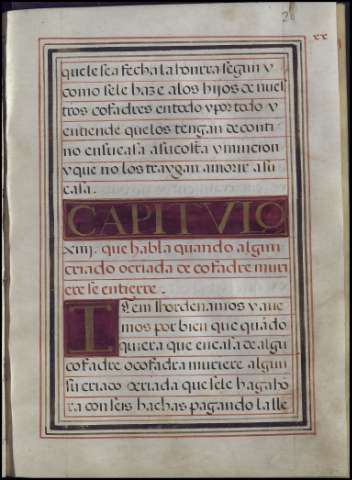 20 xx
que le sea fecha la honrra segun y
como se le haze a los hijos de nues
tros cofadres en todo y por todo y
entiende que los tengan de conti
no en su casa a su costa y mincion
y que no los traygan a morir a su
casa.
CAPITVLO
xiij. que habla quando algun
criado o criada de cofadre muri
ere se entierre.
Item Hordenamos y ave
mos por bien que quãdo
quiera que en casa de algũ
cofadre o cofadra muriere algun
su criado o criada que se le haga hõ
rra con seis hachas pagando la lle